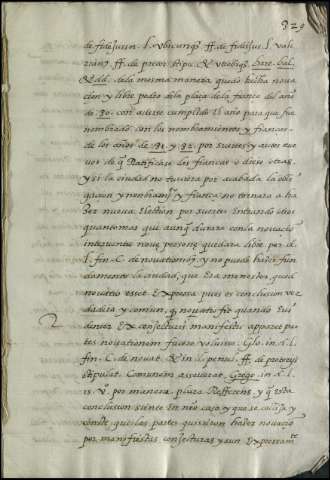 329
de fidejussor. l. ubicunq; ff. de fideiuss. l. vale
ff. de pretor stipu. &
de la mesma manera quedo hecha nova
cion y libre pedro de la plaça de la fiança del año
de 90. con averse cumplido el año para que fue
nombrado con los nombramientos y fianças
de los años de 91. y 92. por suertes y autos nue
vos de q̃ Ratificase las fianças o diese otras.
y si la ciudad no tuviera por acabada la obli
gacion y nombram.to y fiança no tornara a ha
zer nueva election por suertes entrando otros
quanto mas que aunq̃ durara con la novacio
interviniendo nova persona quedara libre por d. l.
fin. C. de novationib9. y no puede haver fun
damento la ciudad, que era menester, quod
novatio esset expressa pues es conclusion ver
dadera y comun, q̃ novatio fit quando evi
denter ex conjecturis manifestis apparet par
tes novationem facere voluisse. Glo. in d. l.
fin. C. de novat. & in l. penul. ff. de pretoriis
stipulat. Comunem asseverat, Grego. in d. l.
15. por manera. Refferens, y q̃ esta
conclusion siente en nro caso, y que se colija y
conste, que las partes quisieron hazer novacio
por manifiestas conjecturas y aun expressam.te